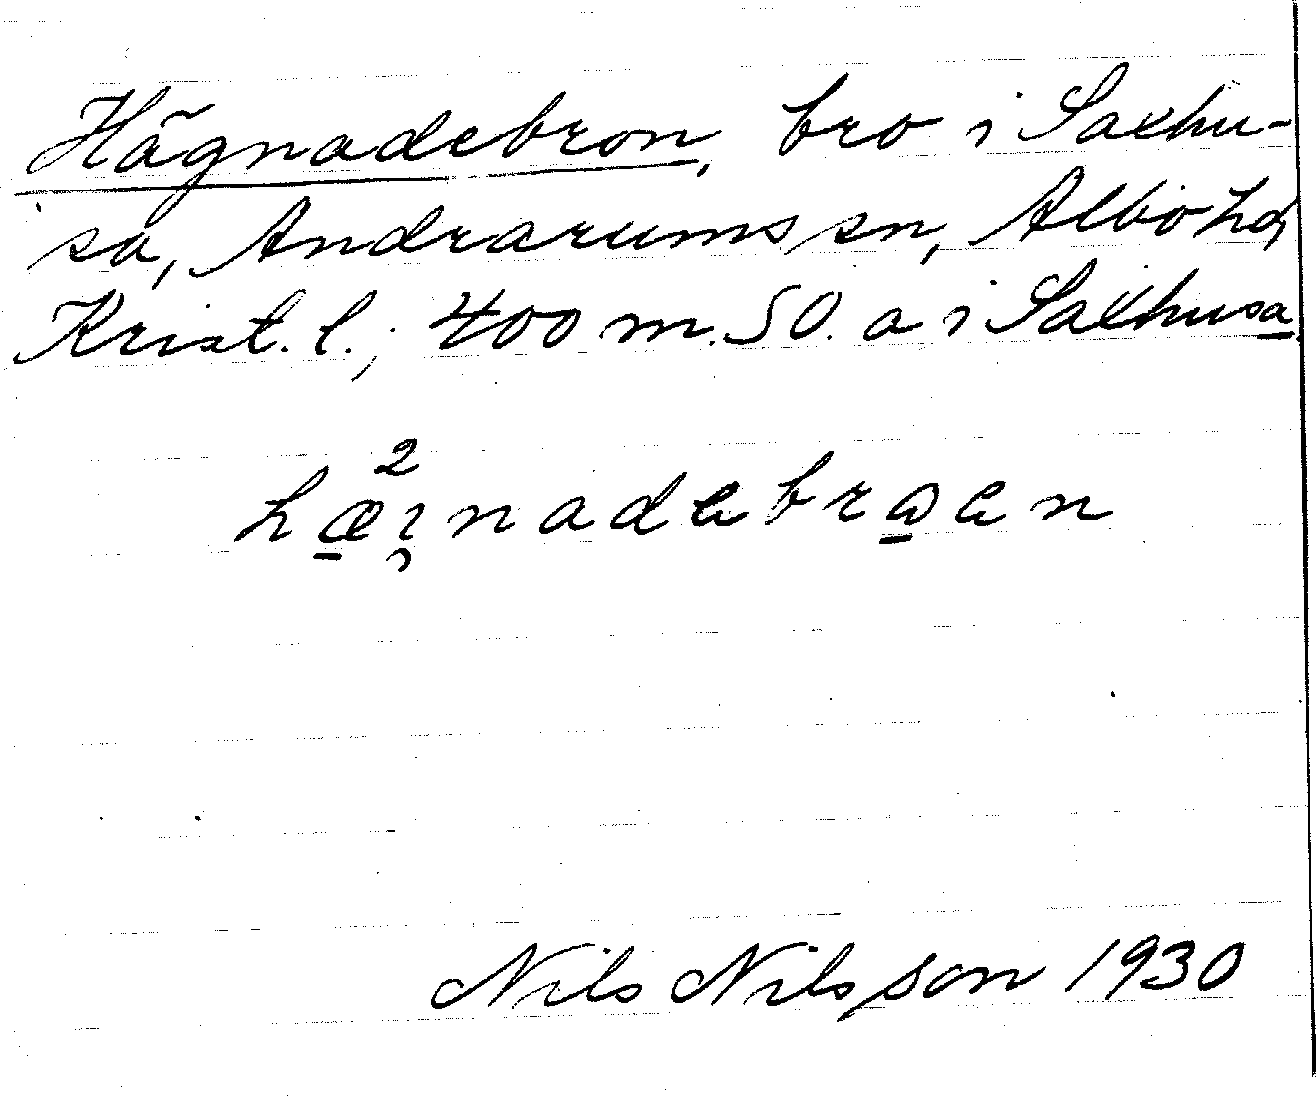 Hägnadebron, bro i Saxhu-
sa, Andrarums sn, Albo hd,
Krist. l.; 400 m. SO. a i Saxhusa.
2
hæi̯nadebrωen
Nils Nilsson 1930